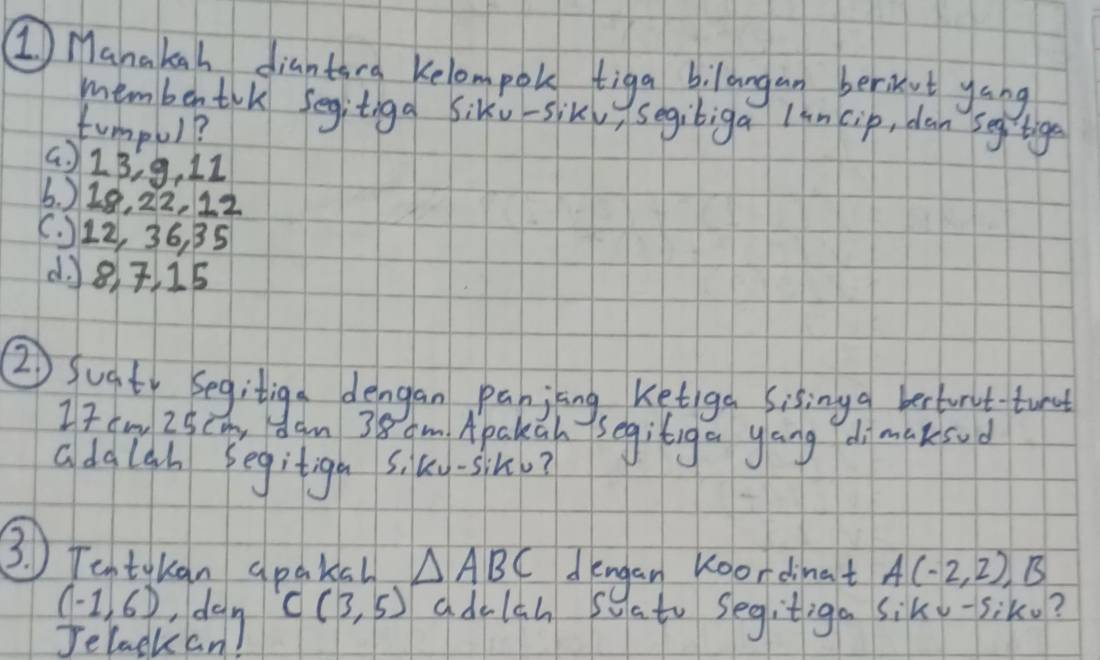 1.) Manakah diantara kelompok tiga bilangan berikut yang
membentuk segitiga siku-siku, segitiga lancip, dan segitiga
tumpul?
a.) 13, 9, 11
b.) 18, 22, 12
c.) 12, 36, 35
d.) 8, 7, 15
2.) Suatu segitiga dengan panjang ketiga sisinya berturut-turut
17 cm, 25 cm, dan 38 cm. Apakah segitiga yang dimaksud
adalah segitiga siku-siku?
3.) Tentukan apakah △ABC dengan koordinat A(-2,2), B
(-1,6), dan C(3,5) adalah suatu segitiga siku-siku?
Jelaskan!